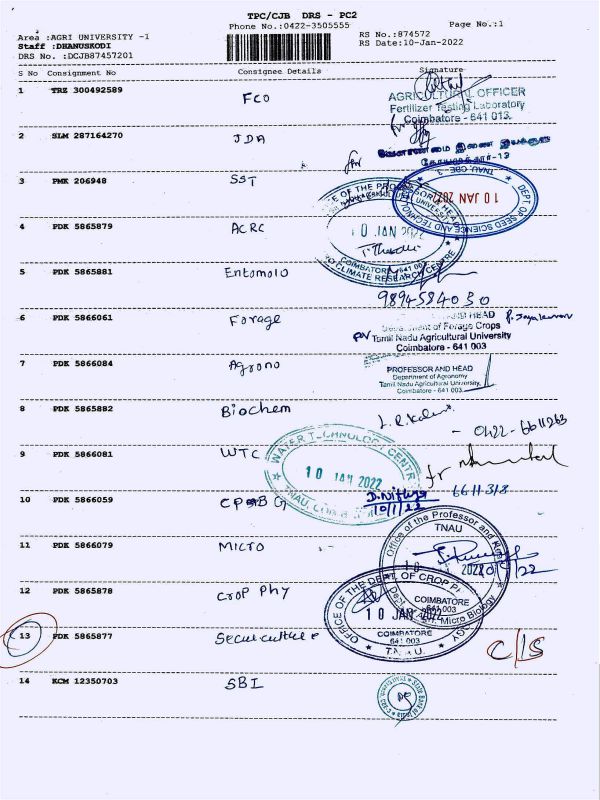 TPC/CJB DRS - PC2
Phone No.:0422-3505555
Page No.:1
Area :AGRI UNIVERSITY -1
RS No.:874572
Staff :DHANUSKODI
RS Date:10-Jan-2022
DRS No. :DCJB87457201
S No Consignment No Consignee Details Signature
1 TRZ 300492589 FCO
AGRICULTURAL OFFICER
Fertilizer Testing Laboratory
Coimbatore - 641 013.
2 SLM 287164270 JDA
for
3 PMK 206948 SST
DEPT OF SEED SCIENCE AND TECHNOLOGY
TNAU, CBE-3
10 JAN 2022
4 PDK 5865879 ACRC
10 JAN 2022
COIMBATORE
641 003
CLIMATE RESEARCH CENTRE
5 PDK 5865881 Entomolo
9894584030
6 PDK 5866061 Forage
AND HEAD
Department of Forage Crops
Tamil Nadu Agricultural University
Coimbatore - 641 003
7 PDK 5866084 Agrono
PROFESSOR AND HEAD
Department of Agronomy
Tamil Nadu Agricultural University,
Coimbatore - 641 003
8 PDK 5865882 Biochem
- 0422-6611263
9 PDK 5866081 WTC
WATER TECHNOLOGY CENTRE
10 JAN 2022
for
10 PDK 5866059 CPBG
D.Nithya
10/1/22
6611313
11 PDK 5866079 MICRO
Office of the Professor and Head
TNAU
COIMBATORE
641 003
Micro Biology
12 PDK 5865878 Crop Phy
OFFICE OF THE DEPT. OF CROP
10 JAN 2022
COIMBATORE
641 003
T.N.A.U.
13 PDK 5865877
C/S
14 KCM 12350703 SBI